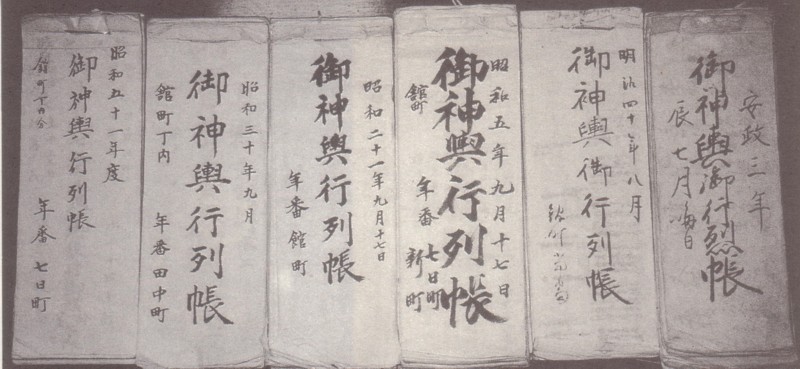 安政三年
御神輿御行烈帳
辰七月晦日
明治四十年八月
御神輿御行列帳
昭和五年九月十七日
御神輿行列帳
舘町
年番
七日町
新町
昭和二十一年九月十七日
御神輿行列帳
年番舘町
昭和三十年九月
御神輿行列帳
舘町丁内
年番田中町
昭和五十一年度
御神輿行列帳
年番七日町